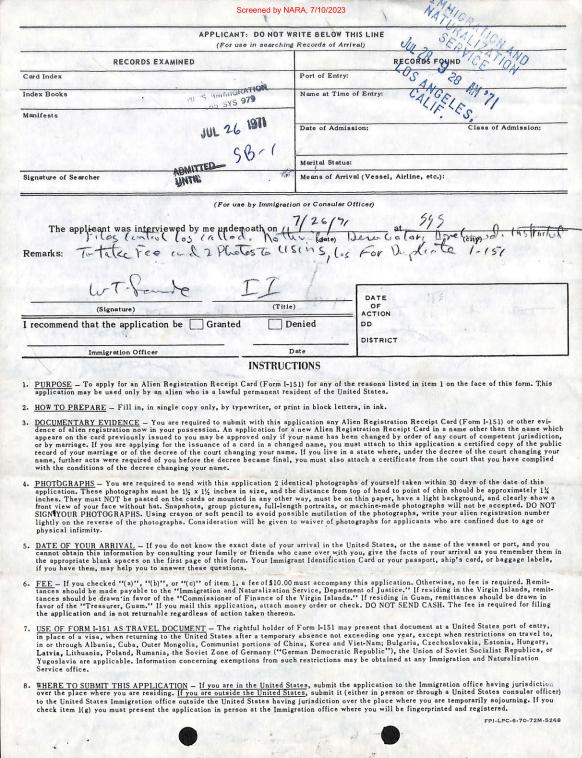 Screened by NARA, 7/10/2023
APPLICANT: DO NOT WRITE BELOW THIS LINE
(For use in searching Records of Arrival)
RECORDS EXAMINED
RECORDS FOUND
IMMIGRATION AND
NATURALIZATION
SERVICE
JUL 28 9 28 AM '71
LOS ANGELES,
CALIF.
Card Index
Port of Entry:
Index Books
Name at Time of Entry:
U. S. IMMIGRATION
SYS 979
Manifests
JUL 26 1971
SB-1
Date of Admission:
Class of Admission:
Marital Status:
ADMITTED
UNTIL
Signature of Searcher
Means of Arrival (Vessel, Airline, etc.):
(For use by Immigration or Consular Officer)
The applicant was interviewed by me under oath on 7/26/71 (date) at SYS (city)
Files Control Los called. Instructed
Remarks: To take Fee and 2 Photos to USINS, Los For Duplicate I-151
II
(Signature)
(Title)
DATE
OF
ACTION
DD
DISTRICT
I recommend that the application be Granted Denied
Immigration Officer
Date
INSTRUCTIONS
1. PURPOSE — To apply for an Alien Registration Receipt Card (Form I-151) for any of the reasons listed in item 1 on the face of this form. This
application may be used only by an alien who is a lawful permanent resident of the United States.
2. HOW TO PREPARE — Fill in, in single copy only, by typewriter, or print in block letters, in ink.
3. DOCUMENTARY EVIDENCE — You are required to submit with this application any Alien Registration Receipt Card (Form I-151) or other evi-
dence of alien registration now in your possession. An application for a new Alien Registration Receipt Card in a name other than the name which
appears on the card previously issued to you may be approved only if your name has been changed by order of any court of competent jurisdiction,
or by marriage. If you are applying for the issuance of a card in a changed name, you must attach to this application a certified copy of the public
record of your marriage or of the decree of the court changing your name. If you live in a state where, under the decree of the court changing your
name, further acts were required of you before the decree became final, you must also attach a certificate from the court that you have complied
with the conditions of the decree changing your name.
4. PHOTOGRAPHS — You are required to send with this application 2 identical photographs of yourself taken within 30 days of the date of this
application. These photographs must be 1½ x 1½ inches in size, and the distance from top of head to point of chin should be approximately 1¼
inches. They must NOT be pasted on the cards or mounted in any other way, must be on thin paper, have a light background, and clearly show a
front view of your face without hat. Snapshots, group pictures, full-length portraits, or machine-made photographs will not be accepted. DO NOT
SIGN YOUR PHOTOGRAPHS. Using crayon or soft pencil to avoid possible mutilation of the photographs, write your alien registration number
lightly on the reverse of the photographs. Consideration will be given to waiver of photographs for applicants who are confined due to age or
physical infirmity.
5. DATE OF YOUR ARRIVAL — If you do not know the exact date of your arrival in the United States, or the name of the vessel or port, and you
cannot obtain this information by consulting your family or friends who came over with you, give the facts of your arrival as you remember them in
the appropriate blank spaces on the first page of this form. Your Immigrant Identification Card or your passport, ship's card, or baggage labels,
if you have them, may help you to answer these questions.
6. FEE — If you checked "(a)", "(b)", or "(c)" of item 1, a fee of $10.00 must accompany this application. Otherwise, no fee is required. Remit-
tances should be made payable to the "Immigration and Naturalization Service, Department of Justice." If residing in the Virgin Islands, remit-
tances should be drawn in favor of the "Commissioner of Finance of the Virgin Islands." If residing in Guam, remittances should be drawn in
favor of the "Treasurer, Guam." If you mail this application, attach money order or check. DO NOT SEND CASH. The fee is required for filing
the application and is not returnable regardless of action taken thereon.
7. USE OF FORM I-151 AS TRAVEL DOCUMENT — The rightful holder of Form I-151 may present that document at a United States port of entry,
in place of a visa, when returning to the United States after a temporary absence not exceeding one year, except when restrictions on travel to,
in or through Albania, Cuba, Outer Mongolia, Communist portions of China, Korea and Viet-Nam; Bulgaria, Czechoslovakia, Estonia, Hungary,
Latvia, Lithuania, Poland, Rumania, the Soviet Zone of Germany ("German Democratic Republic"), the Union of Soviet Socialist Republics, or
Yugoslavia are applicable. Information concerning exemptions from such restrictions may be obtained at any Immigration and Naturalization
Service office.
8. WHERE TO SUBMIT THIS APPLICATION — If you are in the United States, submit the application to the Immigration office having jurisdiction
over the place where you are residing. If you are outside the United States, submit it (either in person or through a United States consular officer)
to the United States Immigration office outside the United States having jurisdiction over the place where you are temporarily sojourning. If you
check item 1(g) you must present the application in person at the Immigration office where you will be fingerprinted and registered.
FPI-LPC-6-70-72M-5268